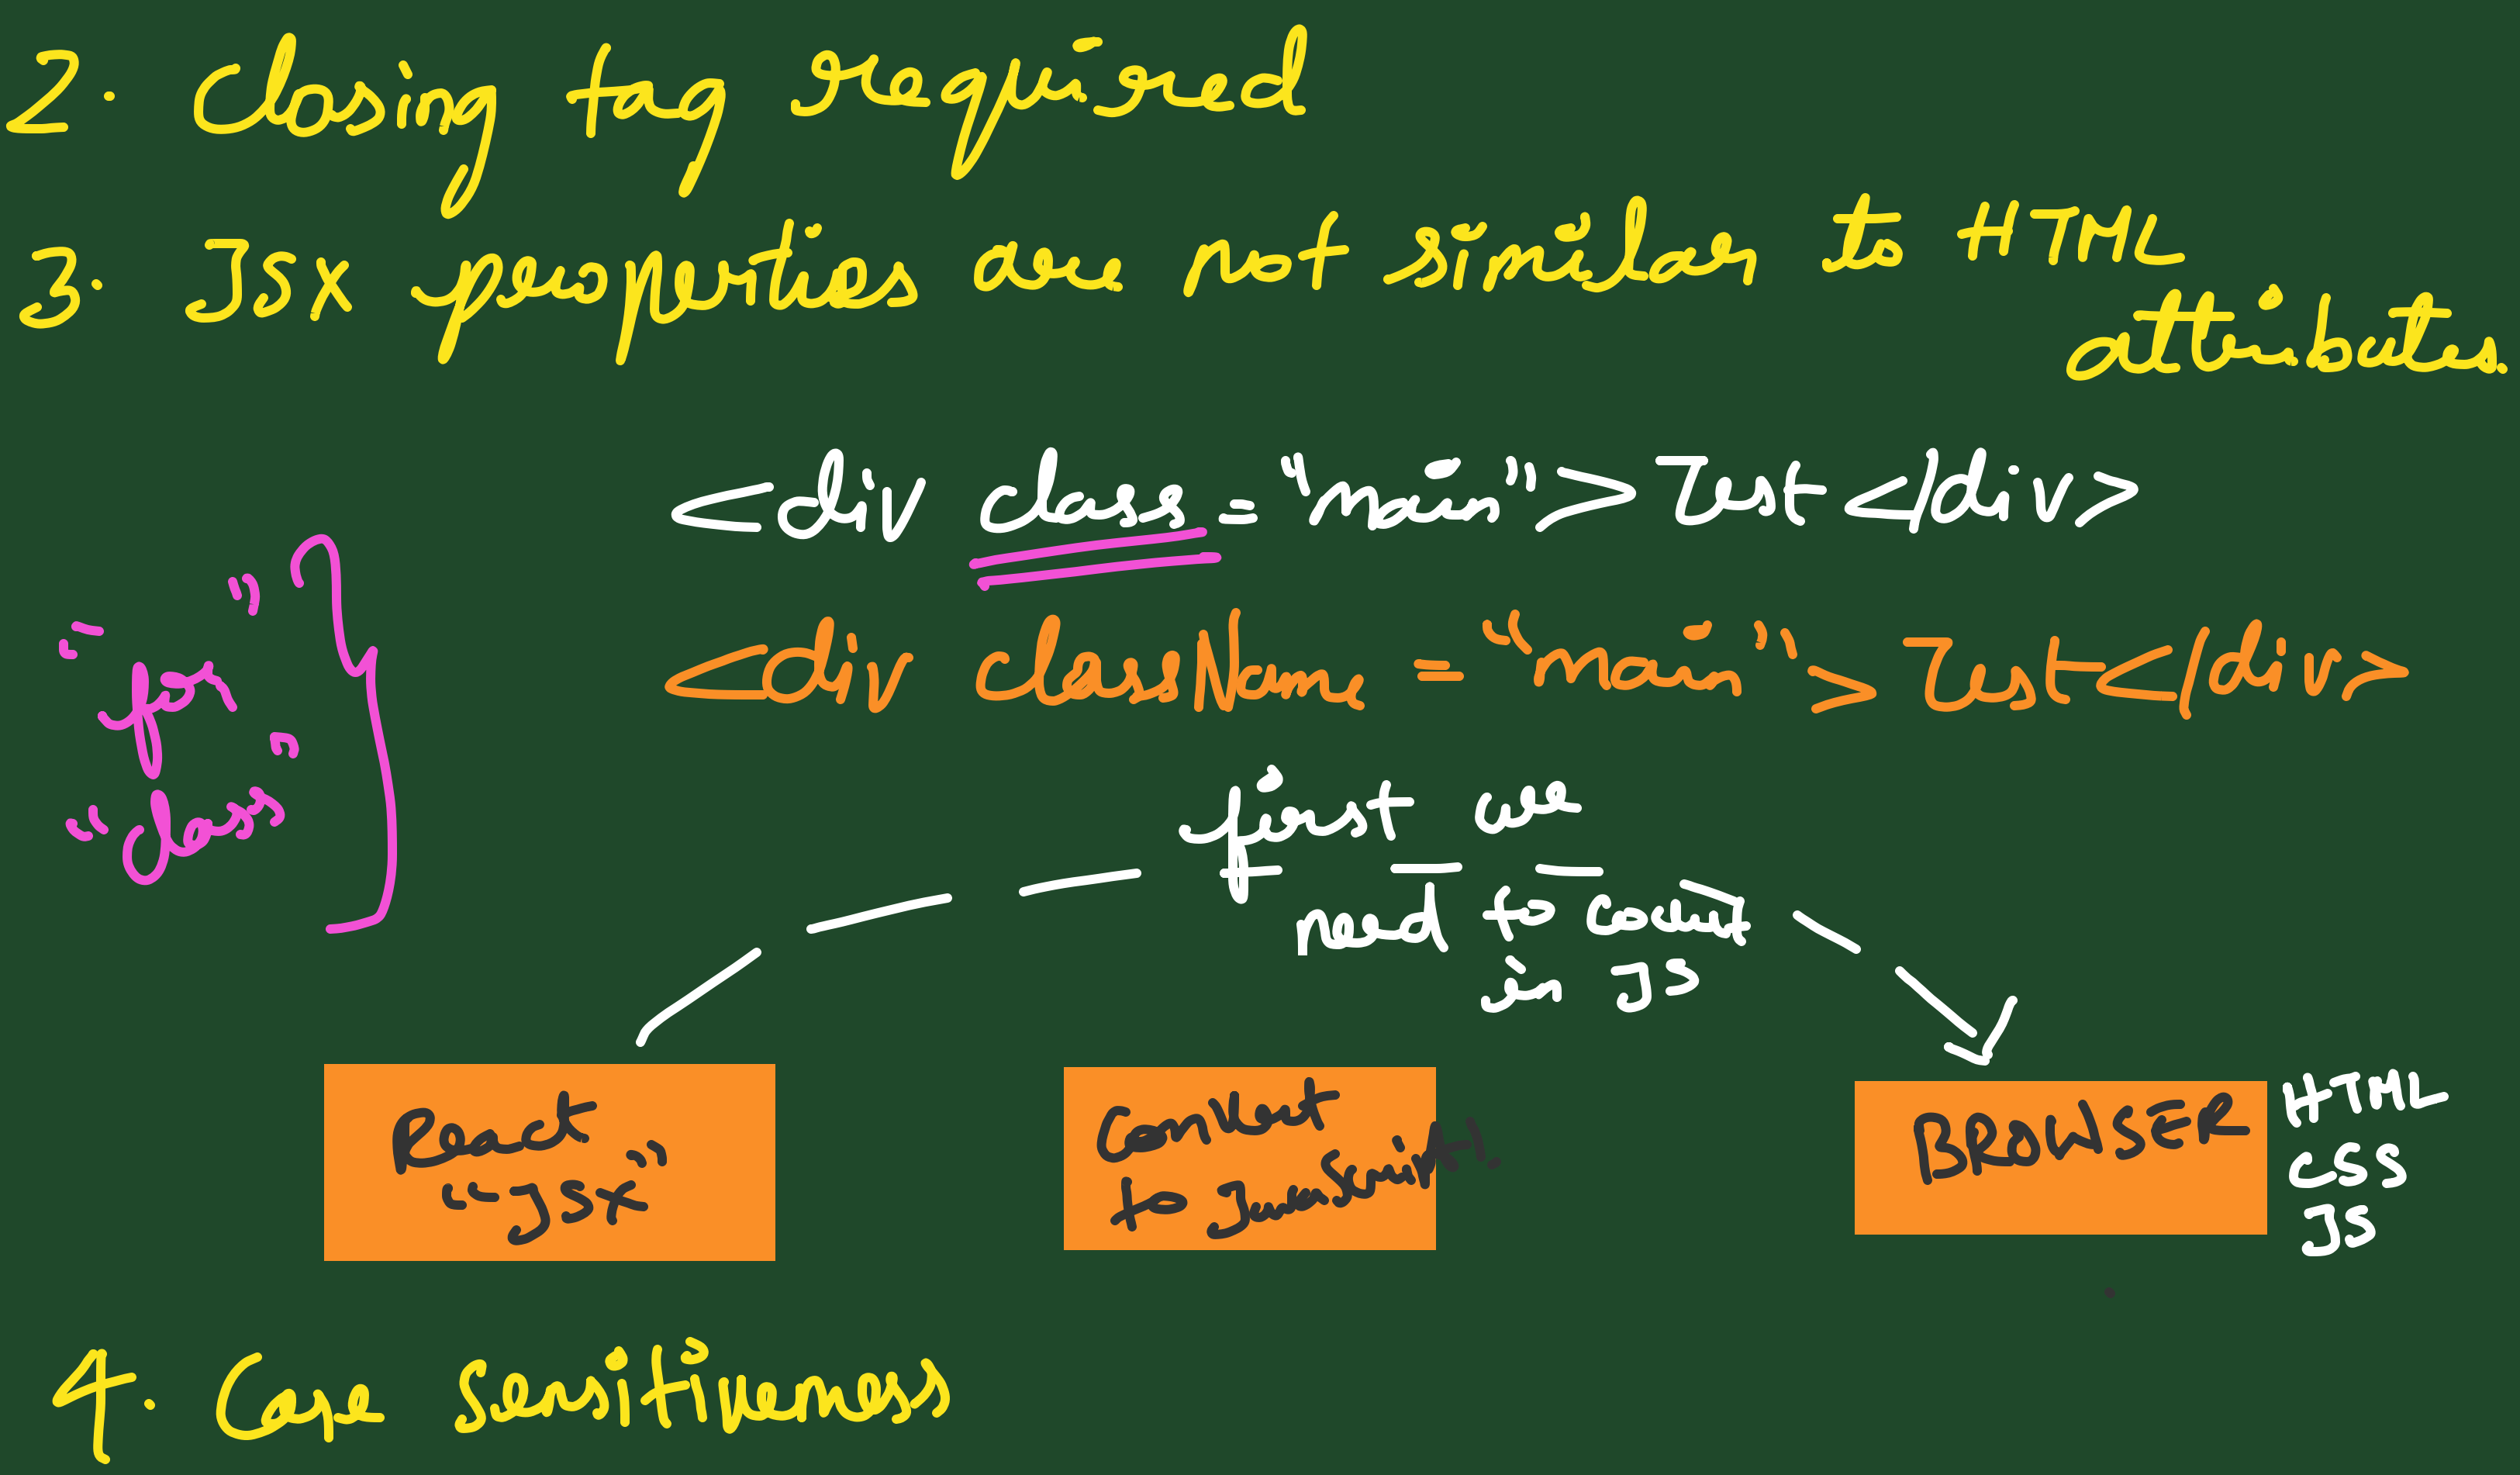 2. Closing tag required
3. JSX properties are not similar to HTML
attributes.
<div class="main">Test</div>
<div className = "main">Test</div>
"for"
"class"
first we
need to convert
in JS
React
"JSX"
Convert
to JavaScript.
BROWSER
HTML
CSS
JS
4. Case sensitiveness